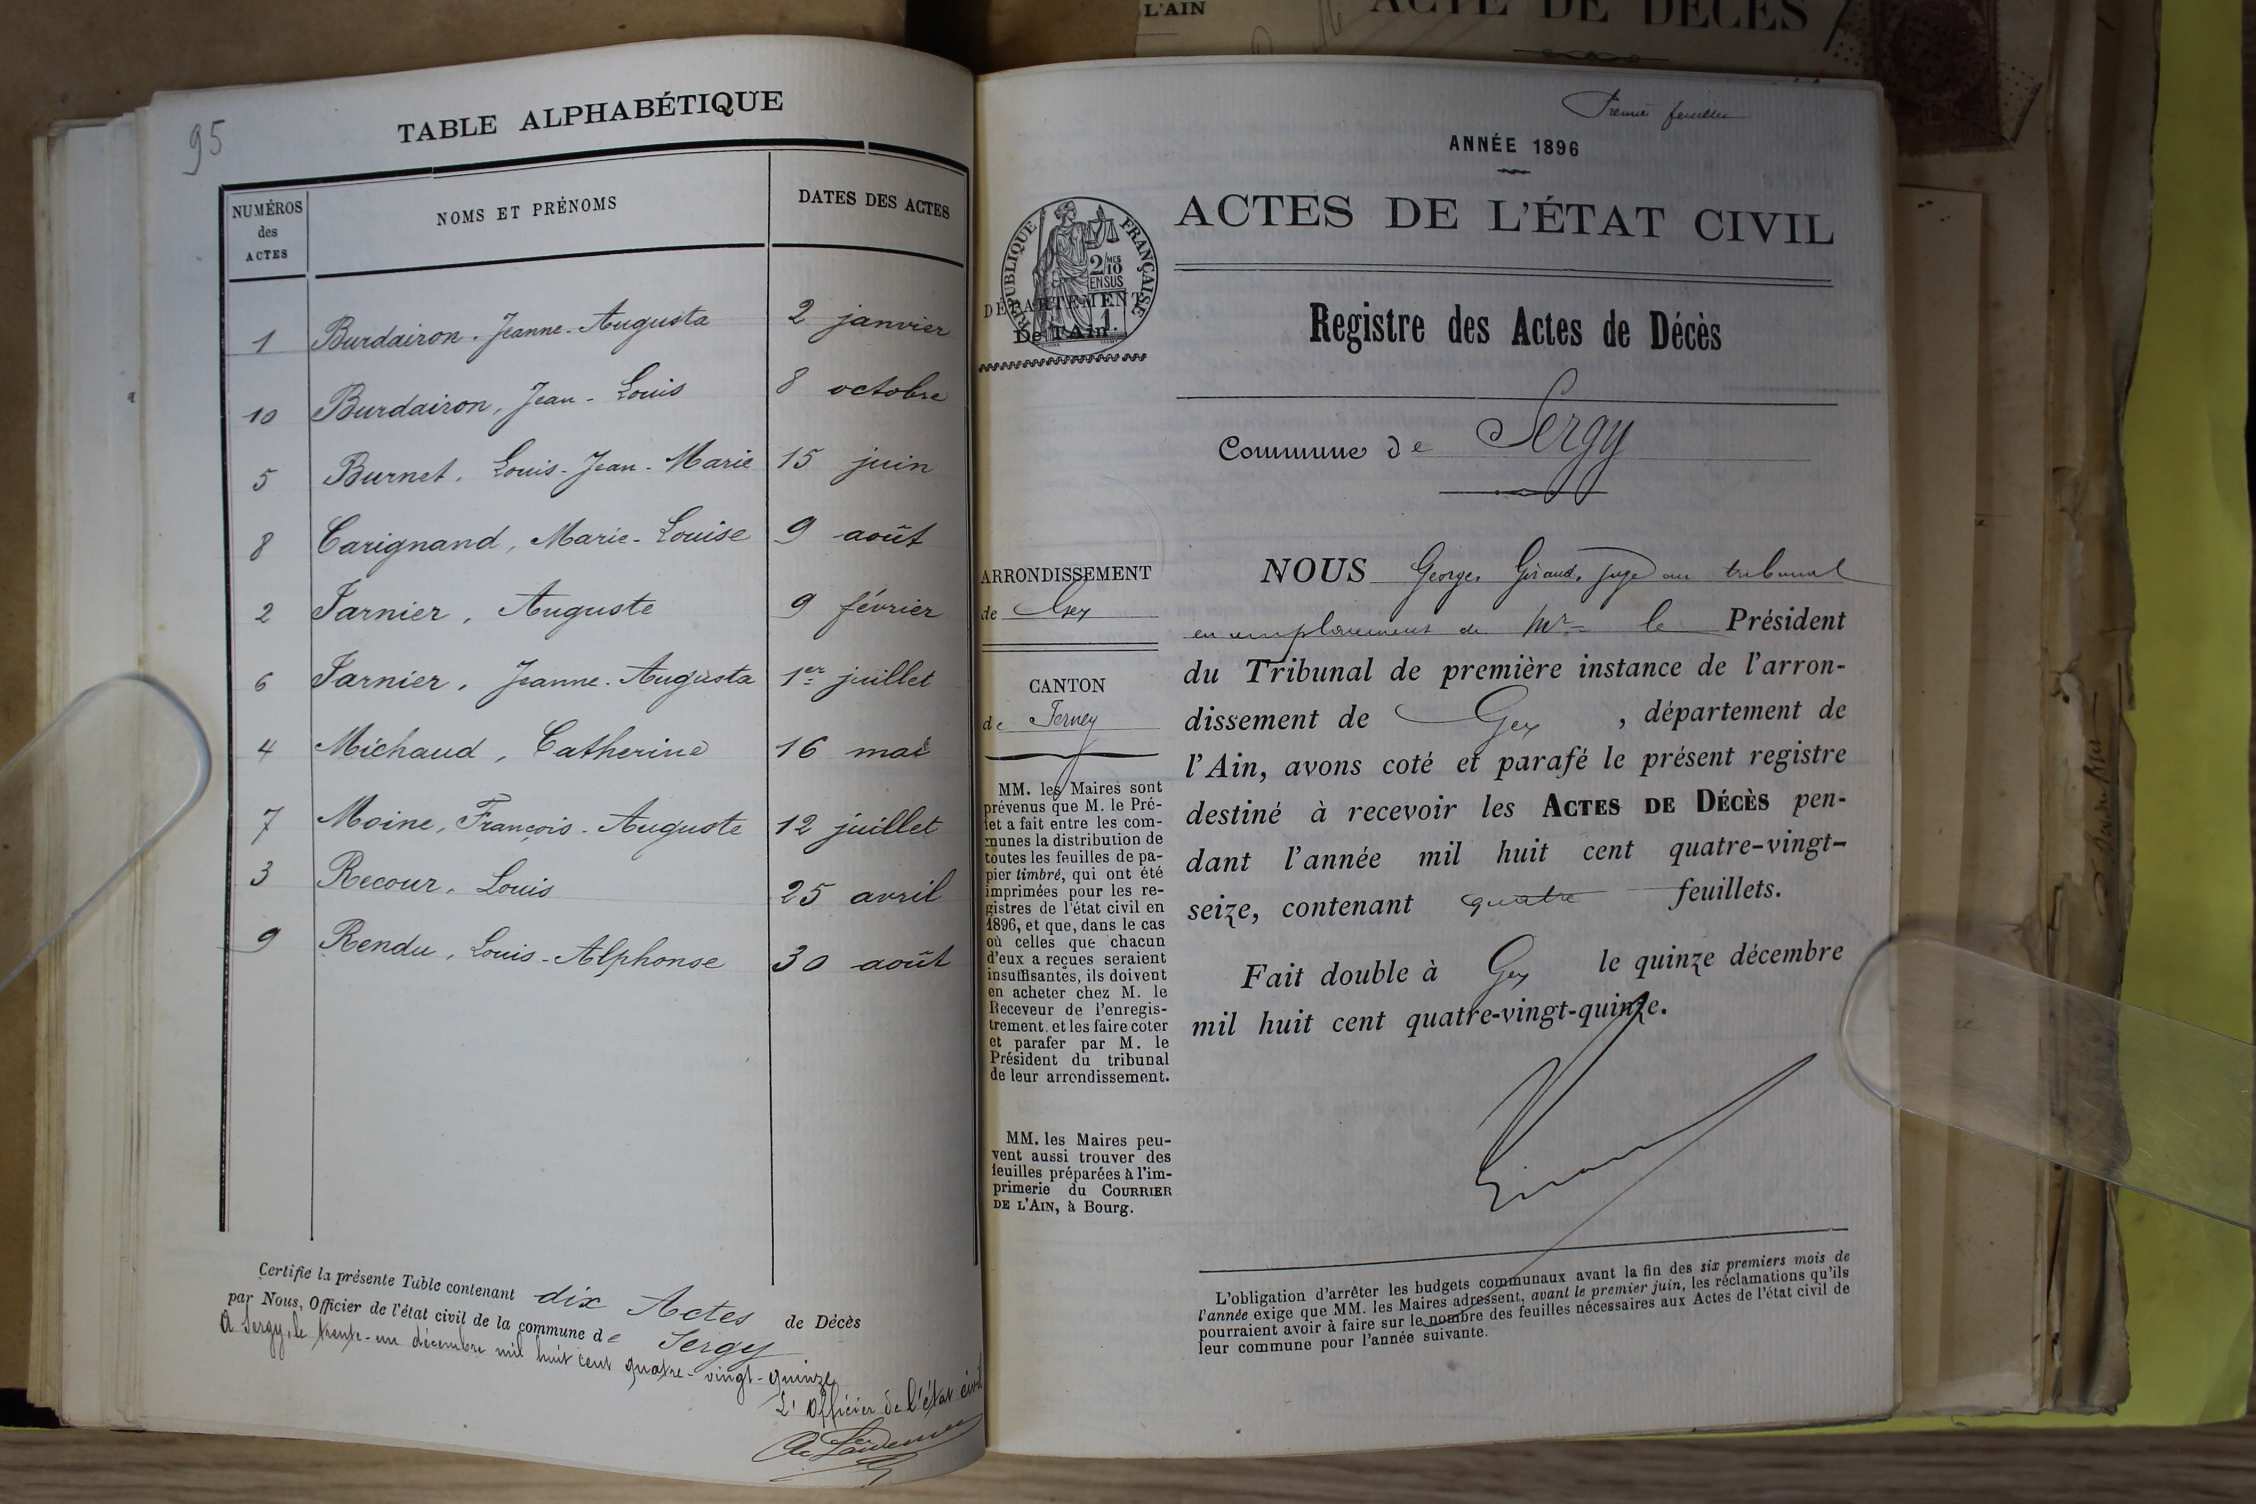 L'AIN
ACTE DE DÉCÈS
95
TABLE ALPHABÉTIQUE
NUMÉROS des ACTES | NOMS ET PRÉNOMS | DATES DES ACTES
1 Burdairon, Jeanne-Augusta 2 janvier
10 Burdairon, Jean-Louis 8 octobre
5 Burnet, Louis-Jean-Marie 15 juin
8 Carignand, Marie-Louise 9 août
2 Jarnier, Auguste 9 février
6 Jarnier, Jeanne-Augusta 1er juillet
4 Michaud, Catherine 16 mai
7 Moine, François-Auguste 12 juillet
3 Recour, Louis 25 avril
9 Rendu, Louis-Alphonse 30 août
Certifie la présente Table contenant dix Actes de Décès
par Nous, Officier de l'état civil de la commune de Sergy
A Sergy, le trente-un décembre mil huit cent quatre-vingt-quinze
L'Officier de l'état civil
ANNÉE 1896
ACTES DE L'ÉTAT CIVIL
RÉPUBLIQUE FRANÇAISE
2/10 MES
EN SUS
DÉPARTEMENT
De l'Ain.
Registre des Actes de Décès
Commune de Sergy
ARRONDISSEMENT
de Gex
CANTON
de Ferney
MM. les Maires sont
prévenus que M. le Pré-
fet a fait entre les com-
munes la distribution de
toutes les feuilles de pa-
pier timbré, qui ont été
imprimées pour les re-
gistres de l'état civil en
1896, et que, dans le cas
où celles que chacun
d'eux a reçues seraient
insuffisantes, ils doivent
en acheter chez M. le
Receveur de l'enregis-
trement, et les faire coter
et parafer par M. le
Président du tribunal
de leur arrondissement.
MM. les Maires peu-
vent aussi trouver des
feuilles préparées à l'im-
primerie du COURRIER
DE L'AIN, à Bourg.
NOUS Georges Giraud, juge au tribunal
en remplacement de Mr le Président
du Tribunal de première instance de l'arron-
dissement de Gex, département de
l'Ain, avons coté et parafé le présent registre
destiné à recevoir les ACTES DE DÉCÈS pen-
dant l'année mil huit cent quatre-vingt-
seize, contenant quatre feuillets.
Fait double à Gex le quinze décembre
mil huit cent quatre-vingt-quinze.
L'obligation d'arrêter les budgets communaux avant la fin des six premiers mois de
l'année exige que MM. les Maires adressent, avant le premier juin, les réclamations qu'ils
pourraient avoir à faire sur le nombre des feuilles nécessaires aux Actes de l'état civil de
leur commune pour l'année suivante.